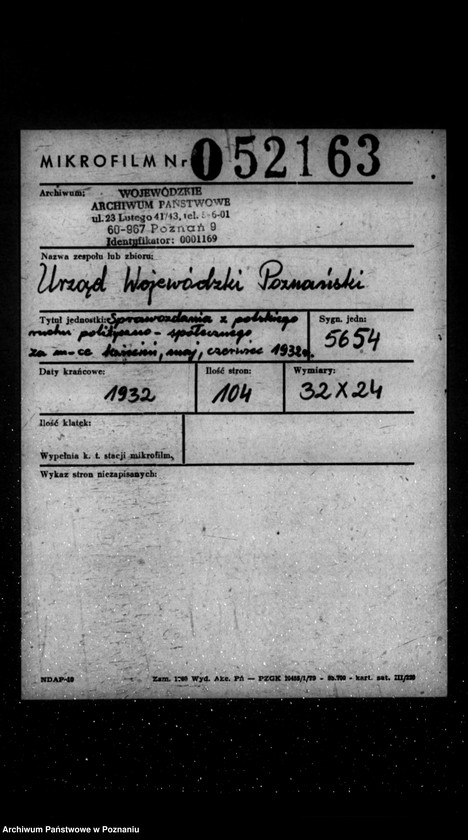 MIKROFILM Nr 052163
Archiwum:
WOJEWÓDZKIE
ARCHIWUM PAŃSTWOWE
ul. 23 Lutego 41/43, tel. 6-01
60-967 Poznań 9
Identyfikator: 0001169
Nazwa zespołu lub zbioru:
Urząd Wojewódzki Poznański
Tytuł jednostki: Sprawozdania z polskiego
ruchu polityczno-społecznego
za m-ce kwiecień, maj, czerwiec 1932 r.
Sygn. jedn:
5654
Daty krańcowe:
1932
Ilość stron:
104
Wymiary:
32 X 24
Ilość klatek:
Wypełnia k. t. stacji mikrofilm.
Wykaz stron niezapisanych:
NDAP-
Zam. Wyd. Akc. PŁ — PZGK - kart. sat. III/
Archiwum Państwowe w Poznaniu